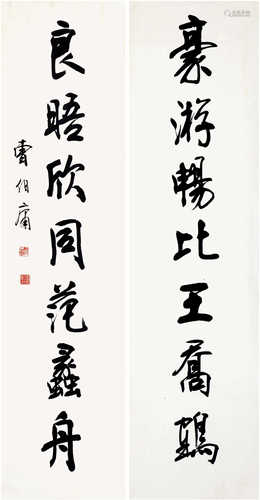 豪游畅比王喬鷁
良晤欣同范蠡舟
曹伯庸